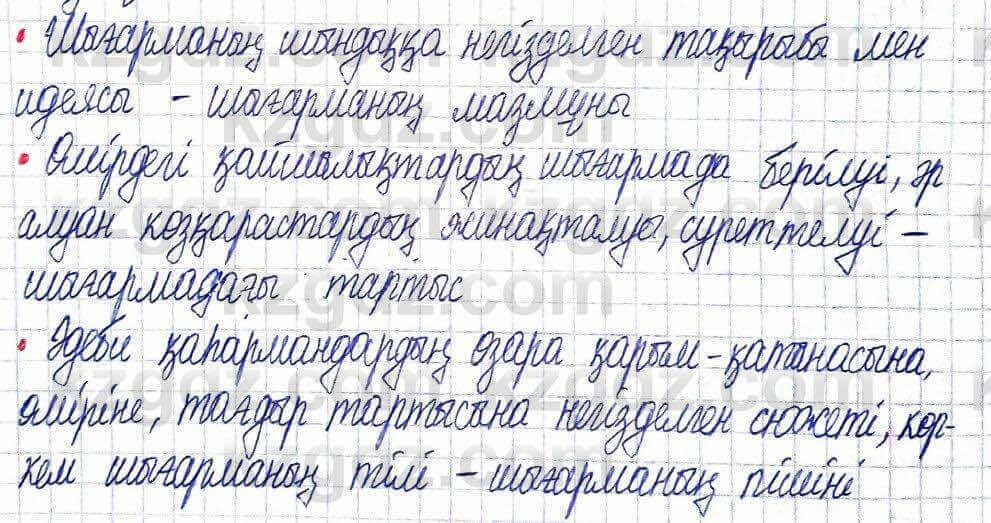 • Шығарманың шындыққа негізделген тақырыбы мен
идеясы – шығарманың мазмұны
• Өмірдегі қайшылықтардың шығармада берілуі, әр
алуан көзқарастардың жинақталуы, суреттелуі –
шығармадағы тартыс
• Әдеби қаһармандардың өзара қарым-қатынасына,
өміріне, тағдыр тартысына негізделген сюжеті, көр-
кем шығарманың тілі – шығарманың пішіні